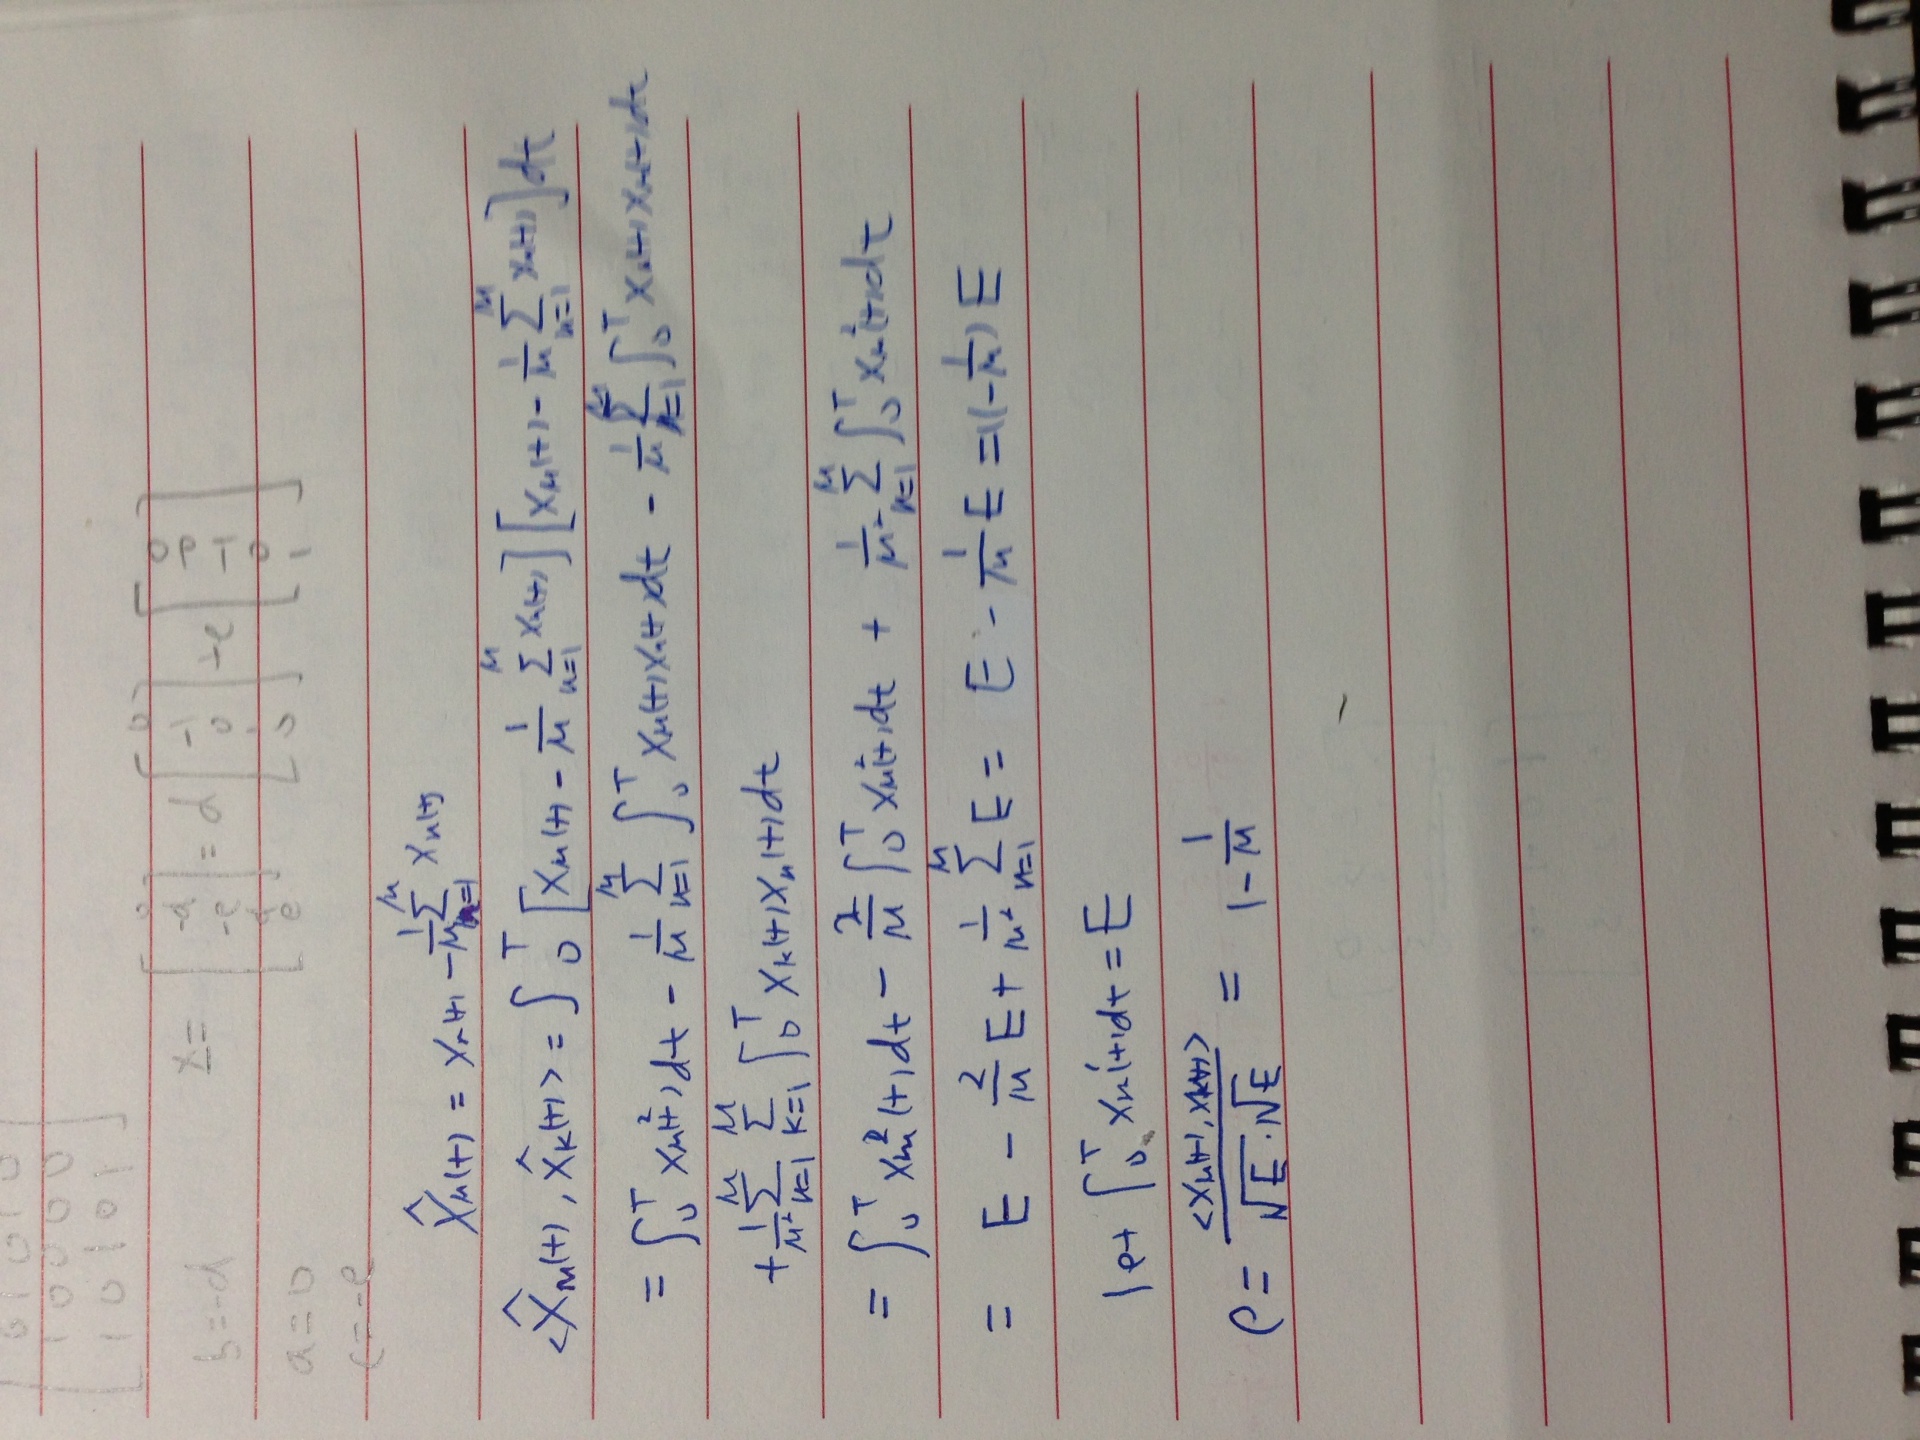 0 1 0 1 0
1 0 0 0 0
1 0 1 0 1
b=-d
x= [0 -d -e d e] = d [0 -1 0 1 0] -e [0 0 -1 0 1]
a=0
c=-e
X̂m(t) = Xm(t) - 1/M ∑_{n=1}^{M} Xn(t)
<X̂m(t), X̂k(t)> = ∫_0^T [Xm(t) - 1/M ∑_{n=1}^{M} Xn(t)] [Xm(t) - 1/M ∑_{n=1}^{M} Xn(t)] dt
= ∫_0^T Xm²(t) dt - 1/M ∑_{n=1}^{M} ∫_0^T Xm(t)Xn(t) dt - 1/M ∑_{n=1}^{M} ∫_0^T Xn(t)Xm(t) dt
+ 1/M² ∑_{n=1}^{M} ∑_{k=1}^{M} ∫_0^T Xk(t)Xn(t) dt
= ∫_0^T Xm²(t) dt - 2/M ∫_0^T Xm²(t) dt + 1/M² ∑_{n=1}^{M} ∫_0^T Xn²(t) dt
= E - 2/M E + 1/M² ∑_{n=1}^{M} E = E - 1/M E = (1-1/M) E
let ∫_0^T Xm²(t) dt = E
ρ = <Xm(t), Xk(t)> / √E·√E = 1 - 1/M